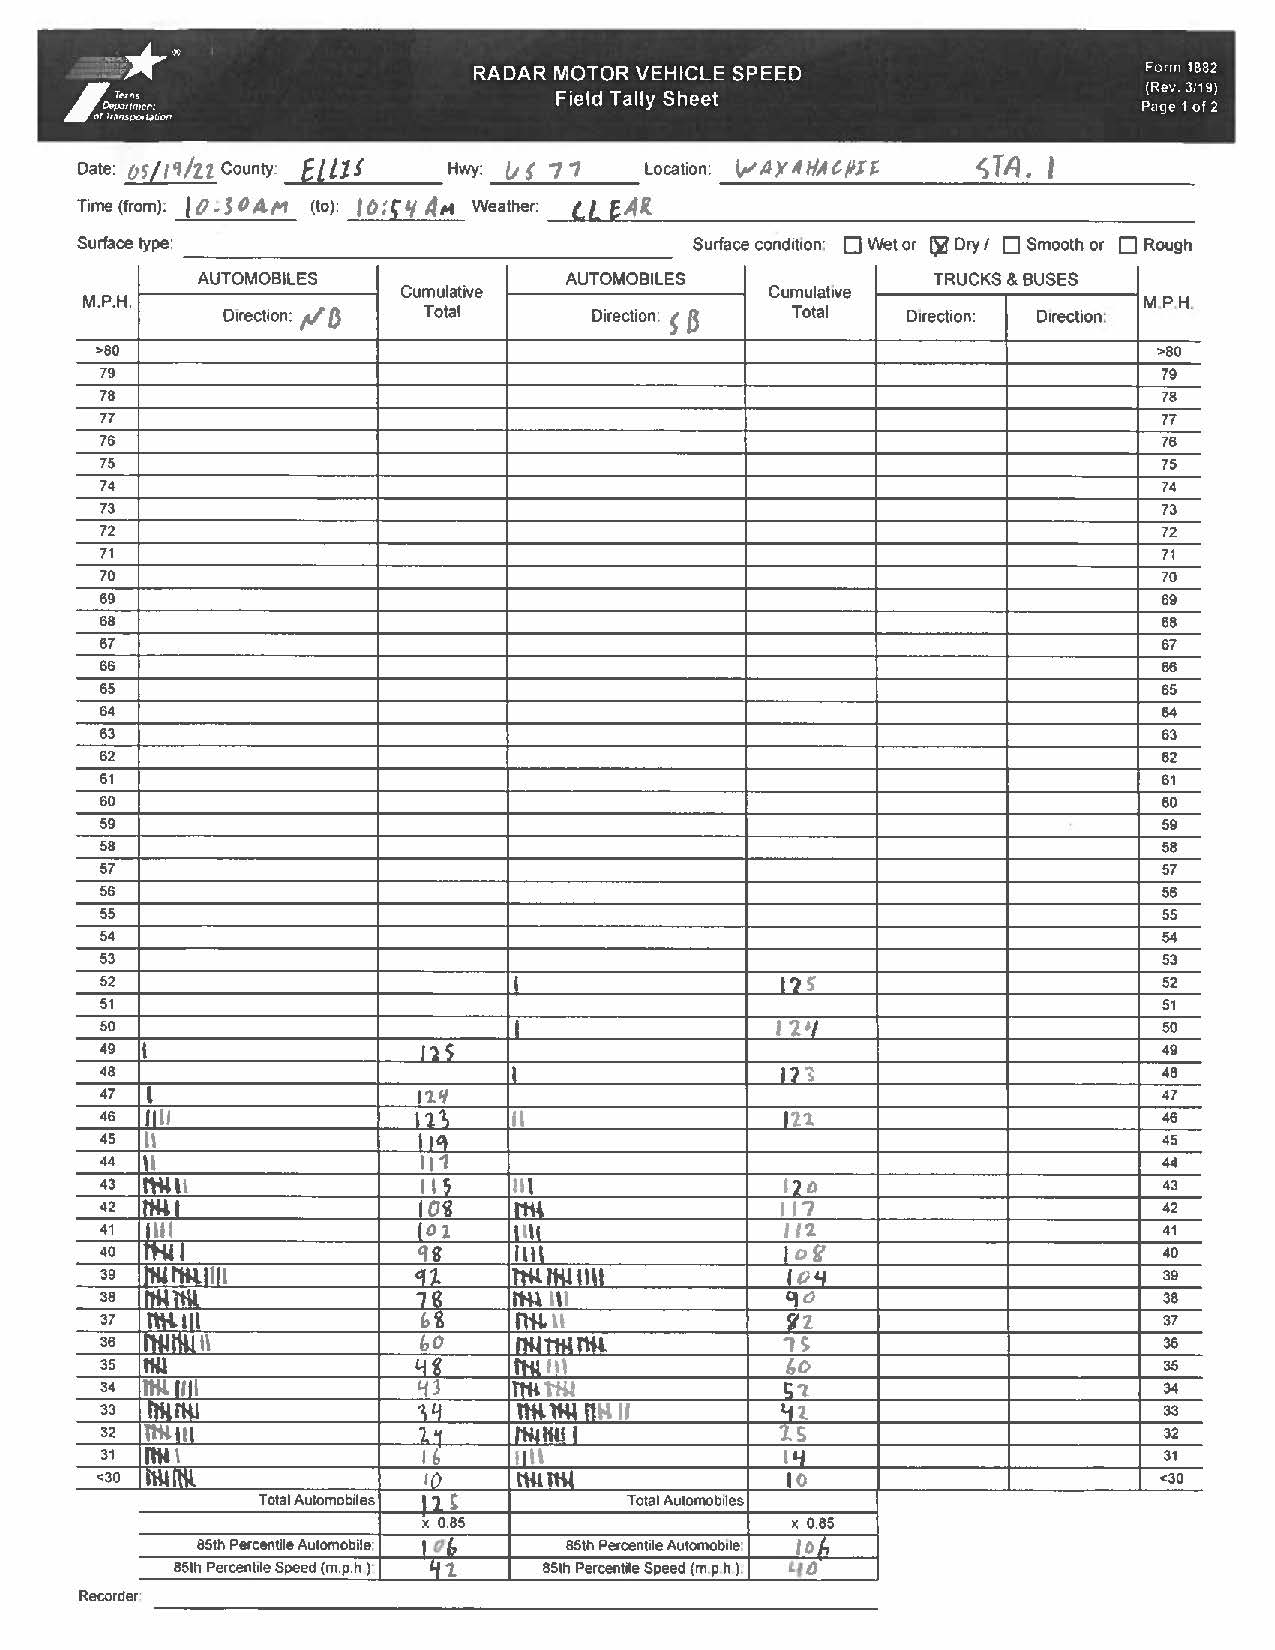 Texas
Department
of Transportation
RADAR MOTOR VEHICLE SPEED
Field Tally Sheet
Form 1882
(Rev. 3/19)
Page 1 of 2
Date: 05/19/22 County: ELLIS Hwy: US 77 Location: WAXAHACHIE STA. 1
Time (from): 10:30AM (to): 10:54 AM Weather: CLEAR
Surface type: Surface condition: Wet or Dry / Smooth or Rough
M.P.H. AUTOMOBILES Cumulative Total AUTOMOBILES Cumulative Total TRUCKS & BUSES M.P.H.
Direction: NB Direction: SB Direction: Direction:
>80 >80
79 79
78 78
77 77
76 76
75 75
74 74
73 73
72 72
71 71
70 70
69 69
68 68
67 67
66 66
65 65
64 64
63 63
62 62
61 61
60 60
59 59
58 58
57 57
56 56
55 55
54 54
53 53
52 125 52
51 51
50 124 50
49 125 49
48 123 48
47 124 47
46 123 122 46
45 119 45
44 117 44
43 115 120 43
42 108 117 42
41 102 112 41
40 98 108 40
39 92 104 39
38 78 90 38
37 68 82 37
36 60 75 36
35 48 60 35
34 43 52 34
33 34 42 33
32 24 25 32
31 16 14 31
<30 10 10 <30
Total Automobiles 125 Total Automobiles
x 0.85 x 0.85
85th Percentile Automobile: 106 85th Percentile Automobile: 106
85th Percentile Speed (m.p.h.): 42 85th Percentile Speed (m.p.h.): 40
Recorder: